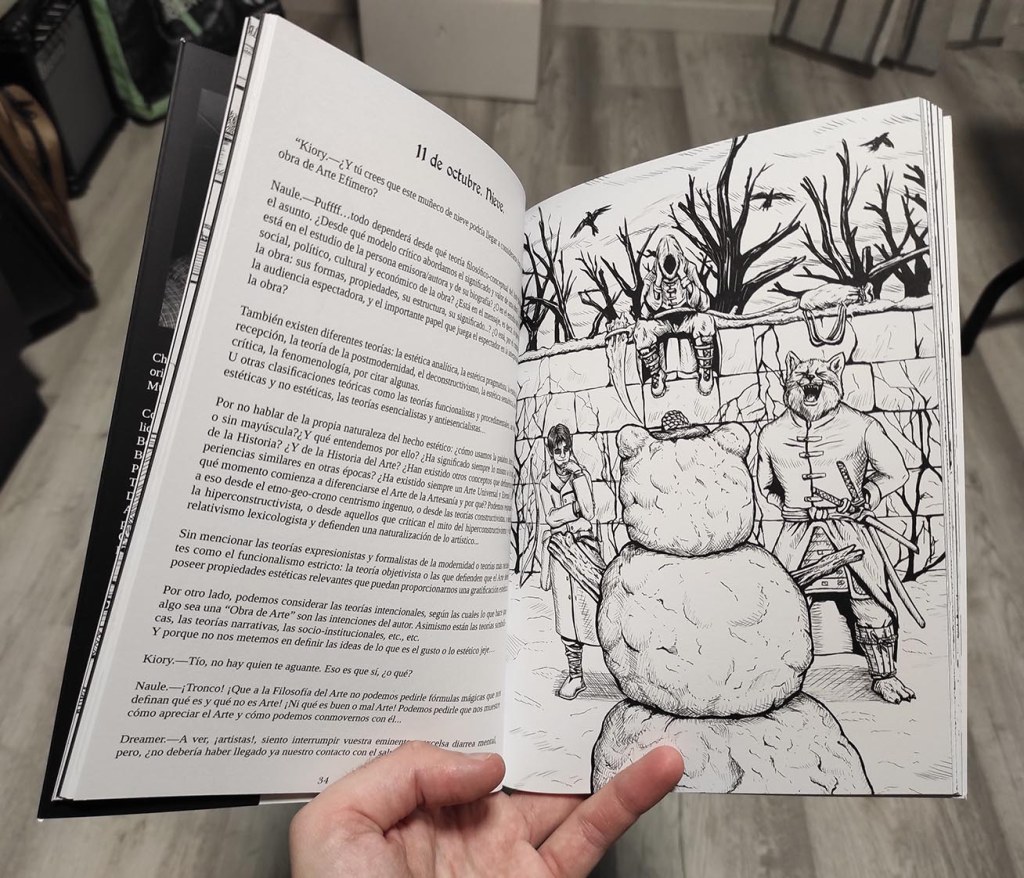 Ch
ori
M
Co
li
B
B
P
T
D
A
11 de octubre. Nieve.
“Kiory.—¿Y tú crees que este muñeco de nieve podría llegar a
obra de Arte Efímero?
Naule.—Puffff…todo dependerá desde qué teoría filosófico-conceptual
el asunto. ¿Desde qué modelo crítico abordamos el significado y valor de
está en el estudio de la persona emisora/autora y de su biografía? ¿O en el
social, político, cultural y económico de la obra? ¿Está en el mensaje, es decir,
la obra: sus formas, propiedades, su estructura, su significado...? ¿O está, por
la audiencia espectadora, y el importante papel que juega el espectador en la
la obra?
También existen diferentes teorías: la estética analítica, la estética pragmatista, la
recepción, la teoría de la postmodernidad, el deconstructivismo, la estética
crítica, la fenomenología, por citar algunas.
U otras clasificaciones teóricas como las teorías funcionalistas y procedimentales,
estéticas y no estéticas, las teorías esencialistas y antiesencialistas...
Por no hablar de la propia naturaleza del hecho estético: ¿cómo usamos la palabra
o sin mayúscula?¿Y qué entendemos por ello? ¿Ha significado siempre lo mismo
de la Historia? ¿Y de la Historia del Arte? ¿Han existido otros conceptos que
periencias similares en otras épocas? ¿Ha existido siempre un Arte Universal y
qué momento comienza a diferenciarse el Arte de la Artesanía y por qué? Podemos
a eso desde el etno-geo-crono centrismo ingenuo, o desde las teorías constructivistas,
la hiperconstructivista, o desde aquellos que critican el mito del hiperconstructivismo
relativismo lexicologista y defienden una naturalización de lo artístico...
Sin mencionar las teorías expresionistas y formalistas de la modernidad o teorías
tes como el funcionalismo estricto: la teoría objetivista o las que defienden que el Arte
poseer propiedades estéticas relevantes que puedan proporcionarnos una gratificación
Por otro lado, podemos considerar las teorías intencionales, según las cuales lo que hace que
algo sea una “Obra de Arte” son las intenciones del autor. Asimismo están las teorías
cas, las teorías narrativas, las socio-institucionales, etc., etc.
Y porque no nos metemos en definir las ideas de lo que es el gusto o lo estético jeje...
Kiory.—Tío, no hay quien te aguante. Eso es que sí, ¿o qué?
Naule.—¡Tronco! ¡Que a la Filosofía del Arte no podemos pedirle fórmulas mágicas que nos
definan qué es y qué no es Arte! ¡Ni qué es buen o mal Arte! Podemos pedirle que nos muestre
cómo apreciar el Arte y cómo podemos conmovernos con él...
Dreamer.—A ver, ¡artistas!, siento interrumpir vuestra eminente excelsa diarrea mental,
pero, ¿no debería haber llegado ya nuestro contacto con el
34